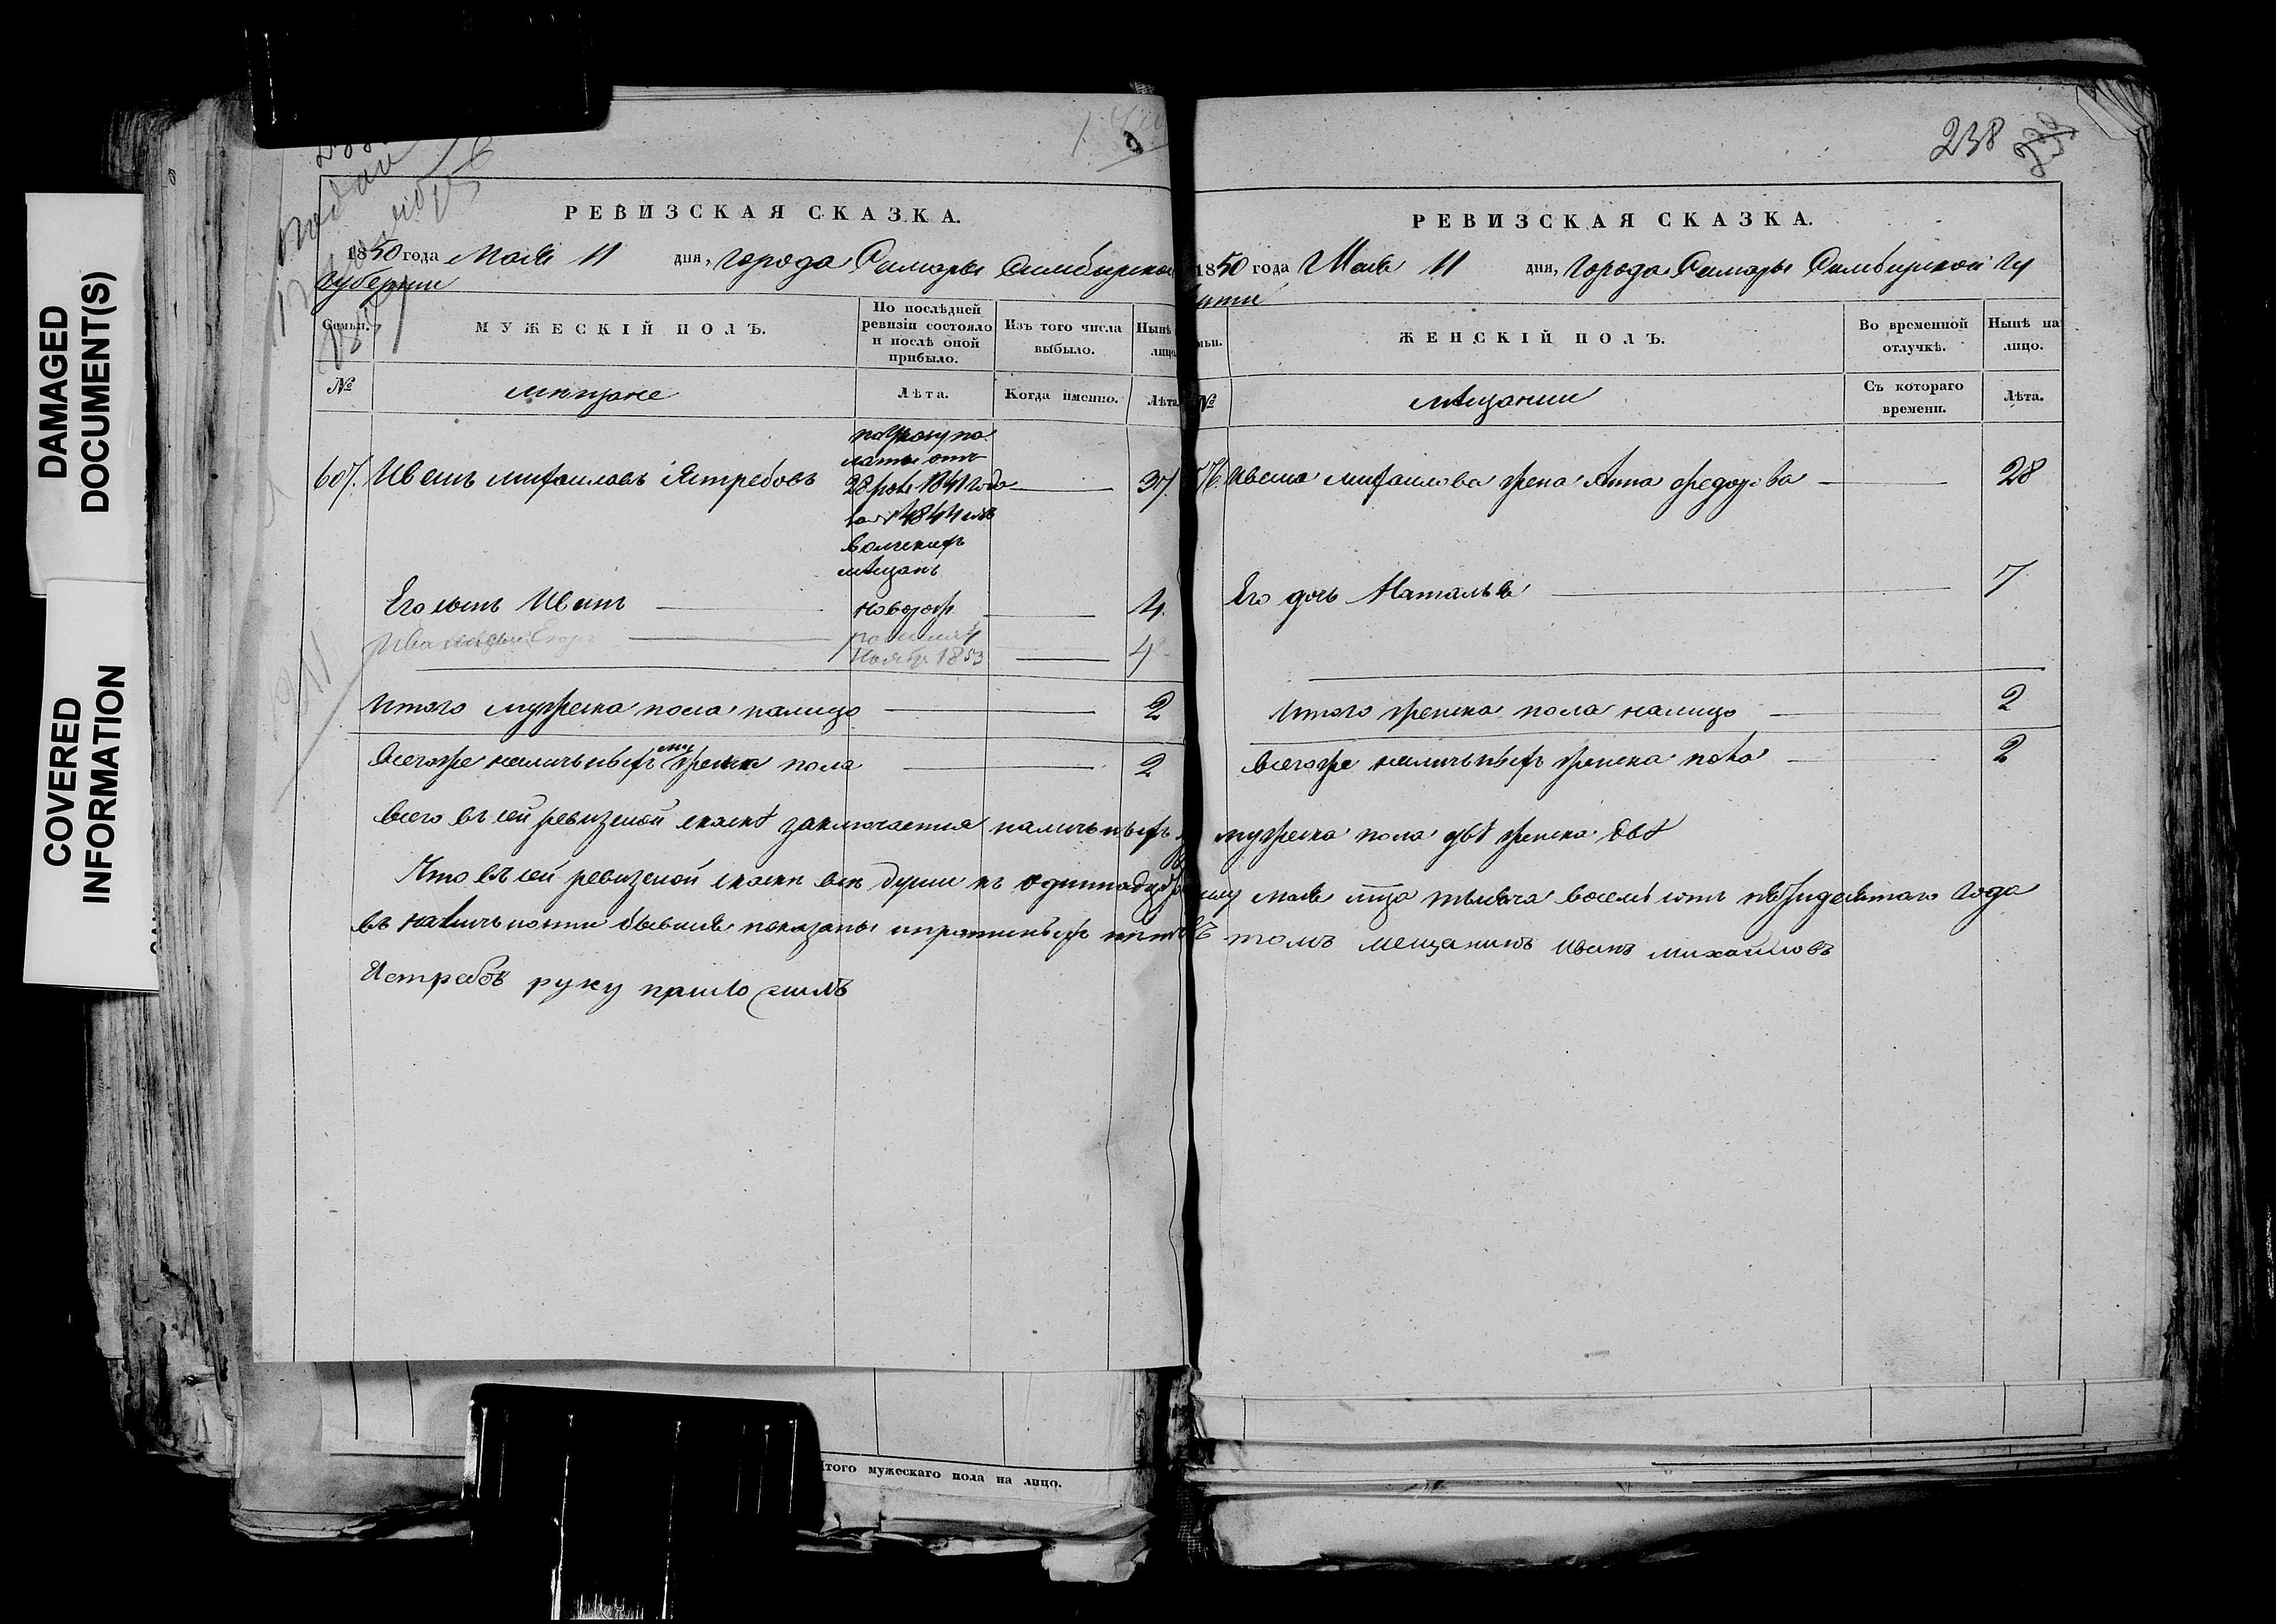 DAMAGED
DOCUMENT(S)
COVERED
INFORMATION
РЕВИЗСКАЯ СКАЗКА.
1850 года Мая 11 дня, города Самары Симбирской
губернии
Семьи. МУЖЕСКІЙ ПОЛЪ. По послѣдней ревизіи состояло и послѣ оной прибыло. Изъ того числа выбыло. Нынѣ лицо
№ мещане Лѣта. Когда именно. Лѣта
по Указу па
латы отъ
607. Иванъ Михаиловъ Ястребовъ 28 1841 года 37.
1844 изъ
вольскихъ
мѣщанъ
Его сынъ Иванъ новорож 4.
Ноябр 1853 4
Итого мужеска пола налицо 2
Всегоже наличныхъ мужеска пола 2
Всего въ сей ревизской сказкѣ заключается наличныхъ
Что въ сей ревизской сказки все души къ одиннадца
въ наличности бывшия показаны и прописныхъ нетъ въ
Ястребовъ руку приложилъ
Итого мужескаго пола на лицо.
238
РЕВИЗСКАЯ СКАЗКА.
1850 года Мая 11 дня, города Самары Симбирской гу
ЖЕНСКІЙ ПОЛЪ. Во временной отлучкѣ. Нынѣ на лицо.
№ мѣщанки Съ котораго времени. Лѣта.
Ивана Михаилова жена Анна Федорова 28
Его дочь Наталья 7
Итого женска пола налицо 2
Всегоже наличныхъ женска пола 2
мужеска пола двѣ женска двѣ
мая мца тысяча восемь сотъ пятидесятаго года
томъ мещанинъ Иванъ Михайловъ